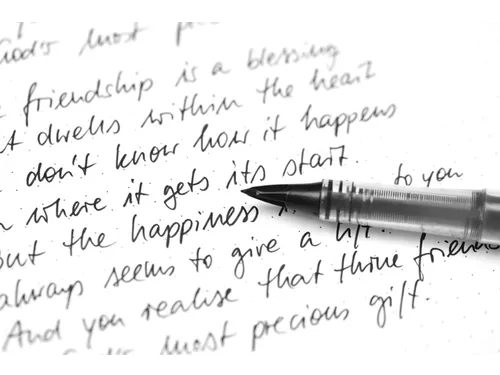 God's most
friendship is a blessing
dwells within the heart
don't know how it happens
where it gets its start.
but the happiness to you
always seems to give a
And you realise that thine
most precious gift.